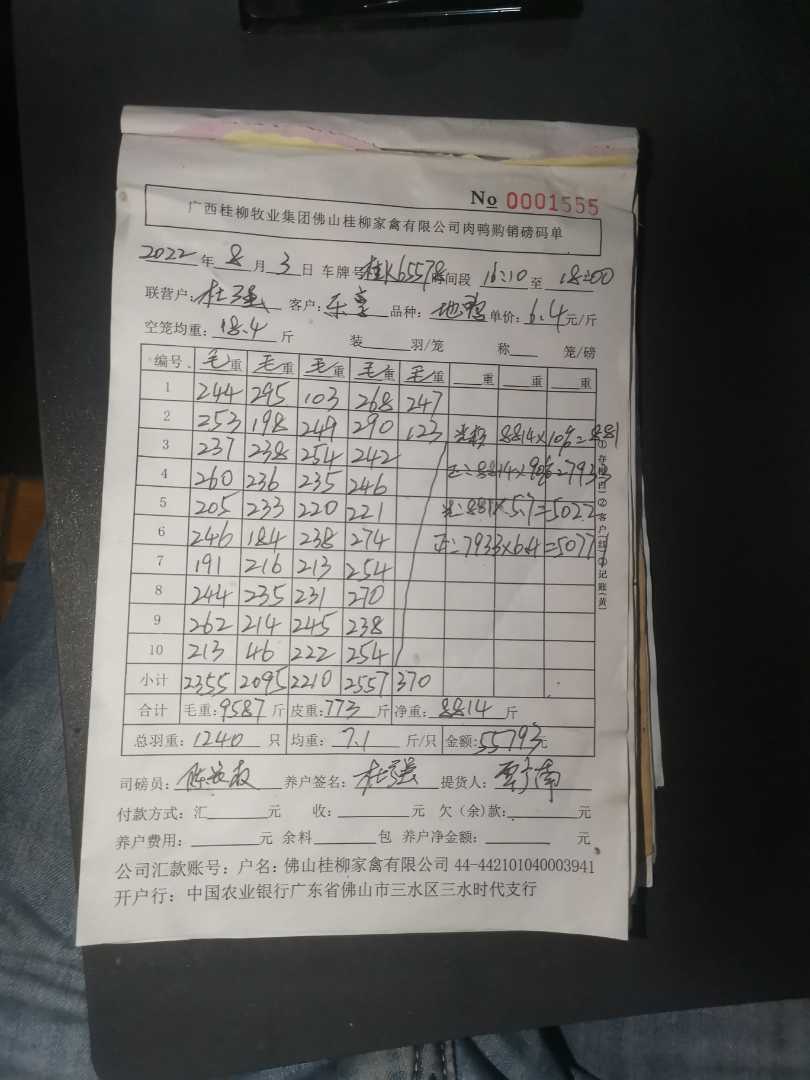 No 0001555
广西桂柳牧业集团佛山桂柳家禽有限公司肉鸭购销磅码单
2022年 8月 3日 车牌号桂K65578时间段 16:10 至 18:00
联营户:杜强 客户: 品种: 地鸭 单价: 6.4 元/斤
空笼均重: 18.4 斤 装 羽/笼 称 笼/磅
编号 毛重 毛重 毛重 毛重 毛重 重 重 重
1 244 295 103 268 247
2 253 198 249 290 123 8814×10%=881
3 237 238 254 242
4 260 236 235 246 正:8814×90%=7933
5 205 233 220 221 881×5.7=5022
6 246 184 238 274 正:7933×6.4=50771
7 191 216 213 254
8 244 235 231 270
9 262 214 245 238
10 213 46 222 254
小计 2355 2095 2210 2557 370
合计 毛重:9587斤 皮重:773斤 净重:8814斤
总羽重:1240 只 均重:7.1 斤/只 金额:55793元
司磅员: 养户签名:杜强 提货人:
付款方式:汇 元 收: 元 欠(余)款: 元
养户费用: 元 余料 包 养户净金额: 元
公司汇款账号:户名:佛山桂柳家禽有限公司 44-442101040003941
开户行:中国农业银行广东省佛山市三水区三水时代支行
②客户(红)③记账(黄)